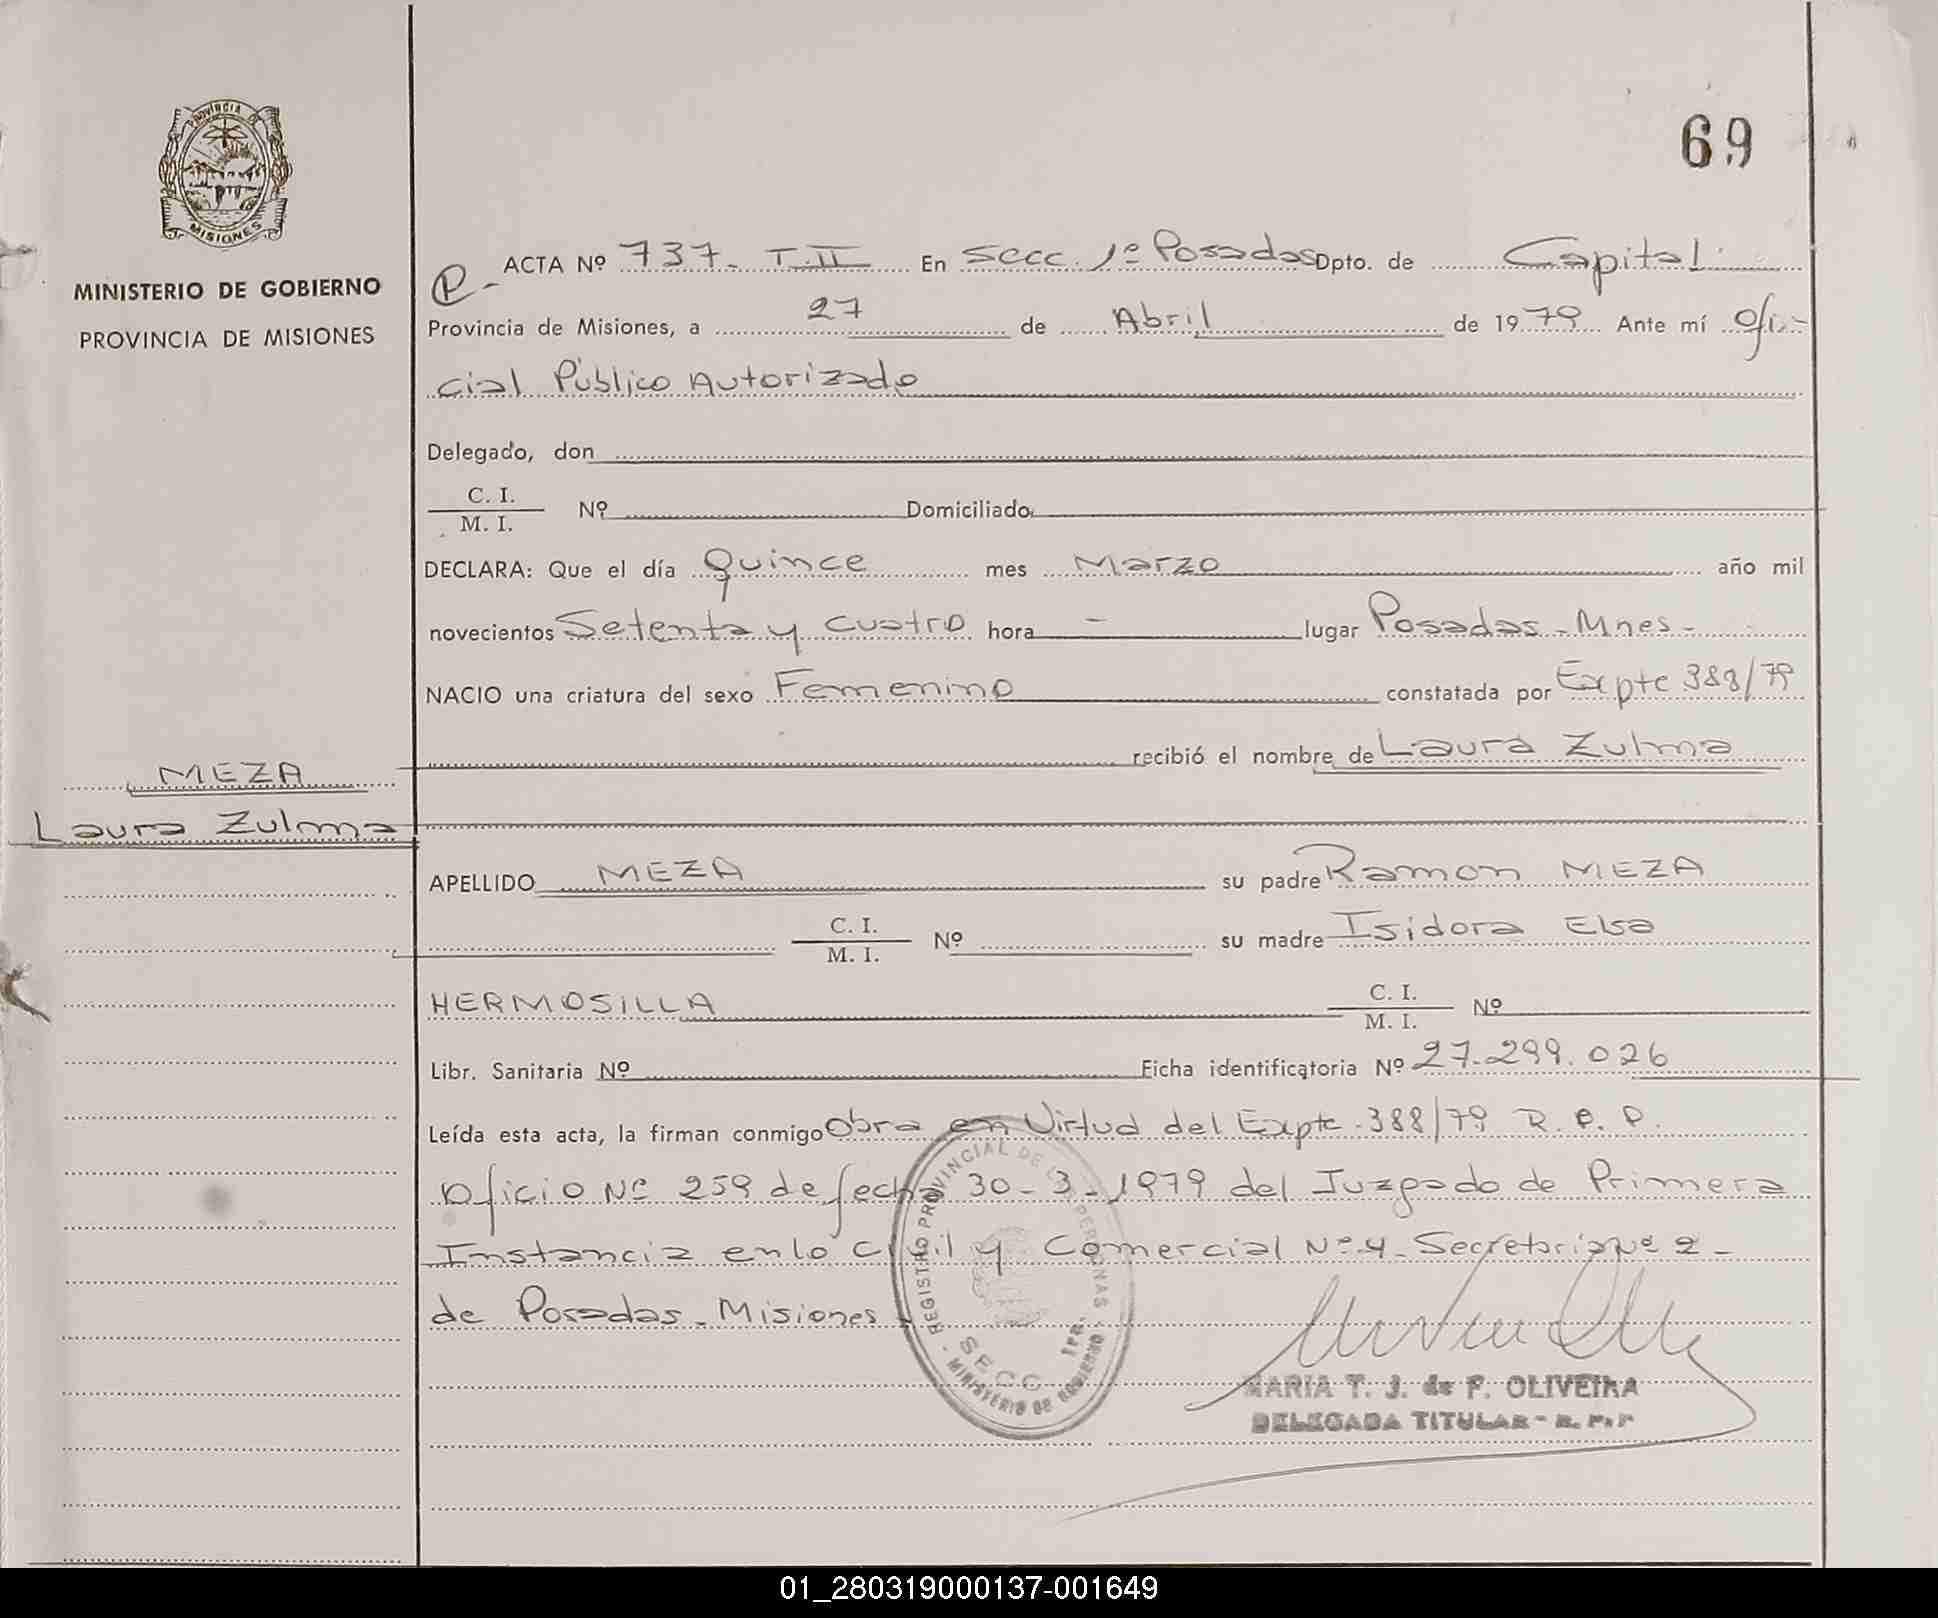 69
PROVINCIA DE
MISIONES
MINISTERIO DE GOBIERNO
PROVINCIA DE MISIONES
P- ACTA Nº 737- T.II En Secc. 1º Posadas Dpto. de Capital
Provincia de Misiones, a 27 de Abril de 1979 Ante mí Ofi-
cial Público Autorizado
Delegado, don
C. I.
M. I. Nº Domiciliado
DECLARA: Que el día Quince mes Marzo año mil
novecientos Setenta y cuatro hora - lugar Posadas - Mnes -
NACIO una criatura del sexo Femenino constatada por Expte 388/79
recibió el nombre de Laura Zulma
MEZA
Laura Zulma
APELLIDO MEZA su padre Ramon MEZA
C. I.
M. I. Nº su madre Isidora Elsa
HERMOSILLA C. I.
M. I. Nº
Libr. Sanitaria Nº Ficha identificatoria Nº 27.299.026
Leída esta acta, la firman conmigo Obra en Virtud del Expte. 388/79 R. P. P.
Oficio Nº 259 de fecha 30-3-1979 del Juzgado de Primera
Instancia en lo Civil y Comercial Nº 4- Secretaria Nº 2-
de Posadas - Misiones
REGISTRO PROVINCIAL DE LAS PERSONAS
SECC. 1ra.
MINISTERIO DE GOBIERNO
MARIA T. J. de F. OLIVEIRA
DELEGADA TITULAR - R. P. P
01_280319000137-001649